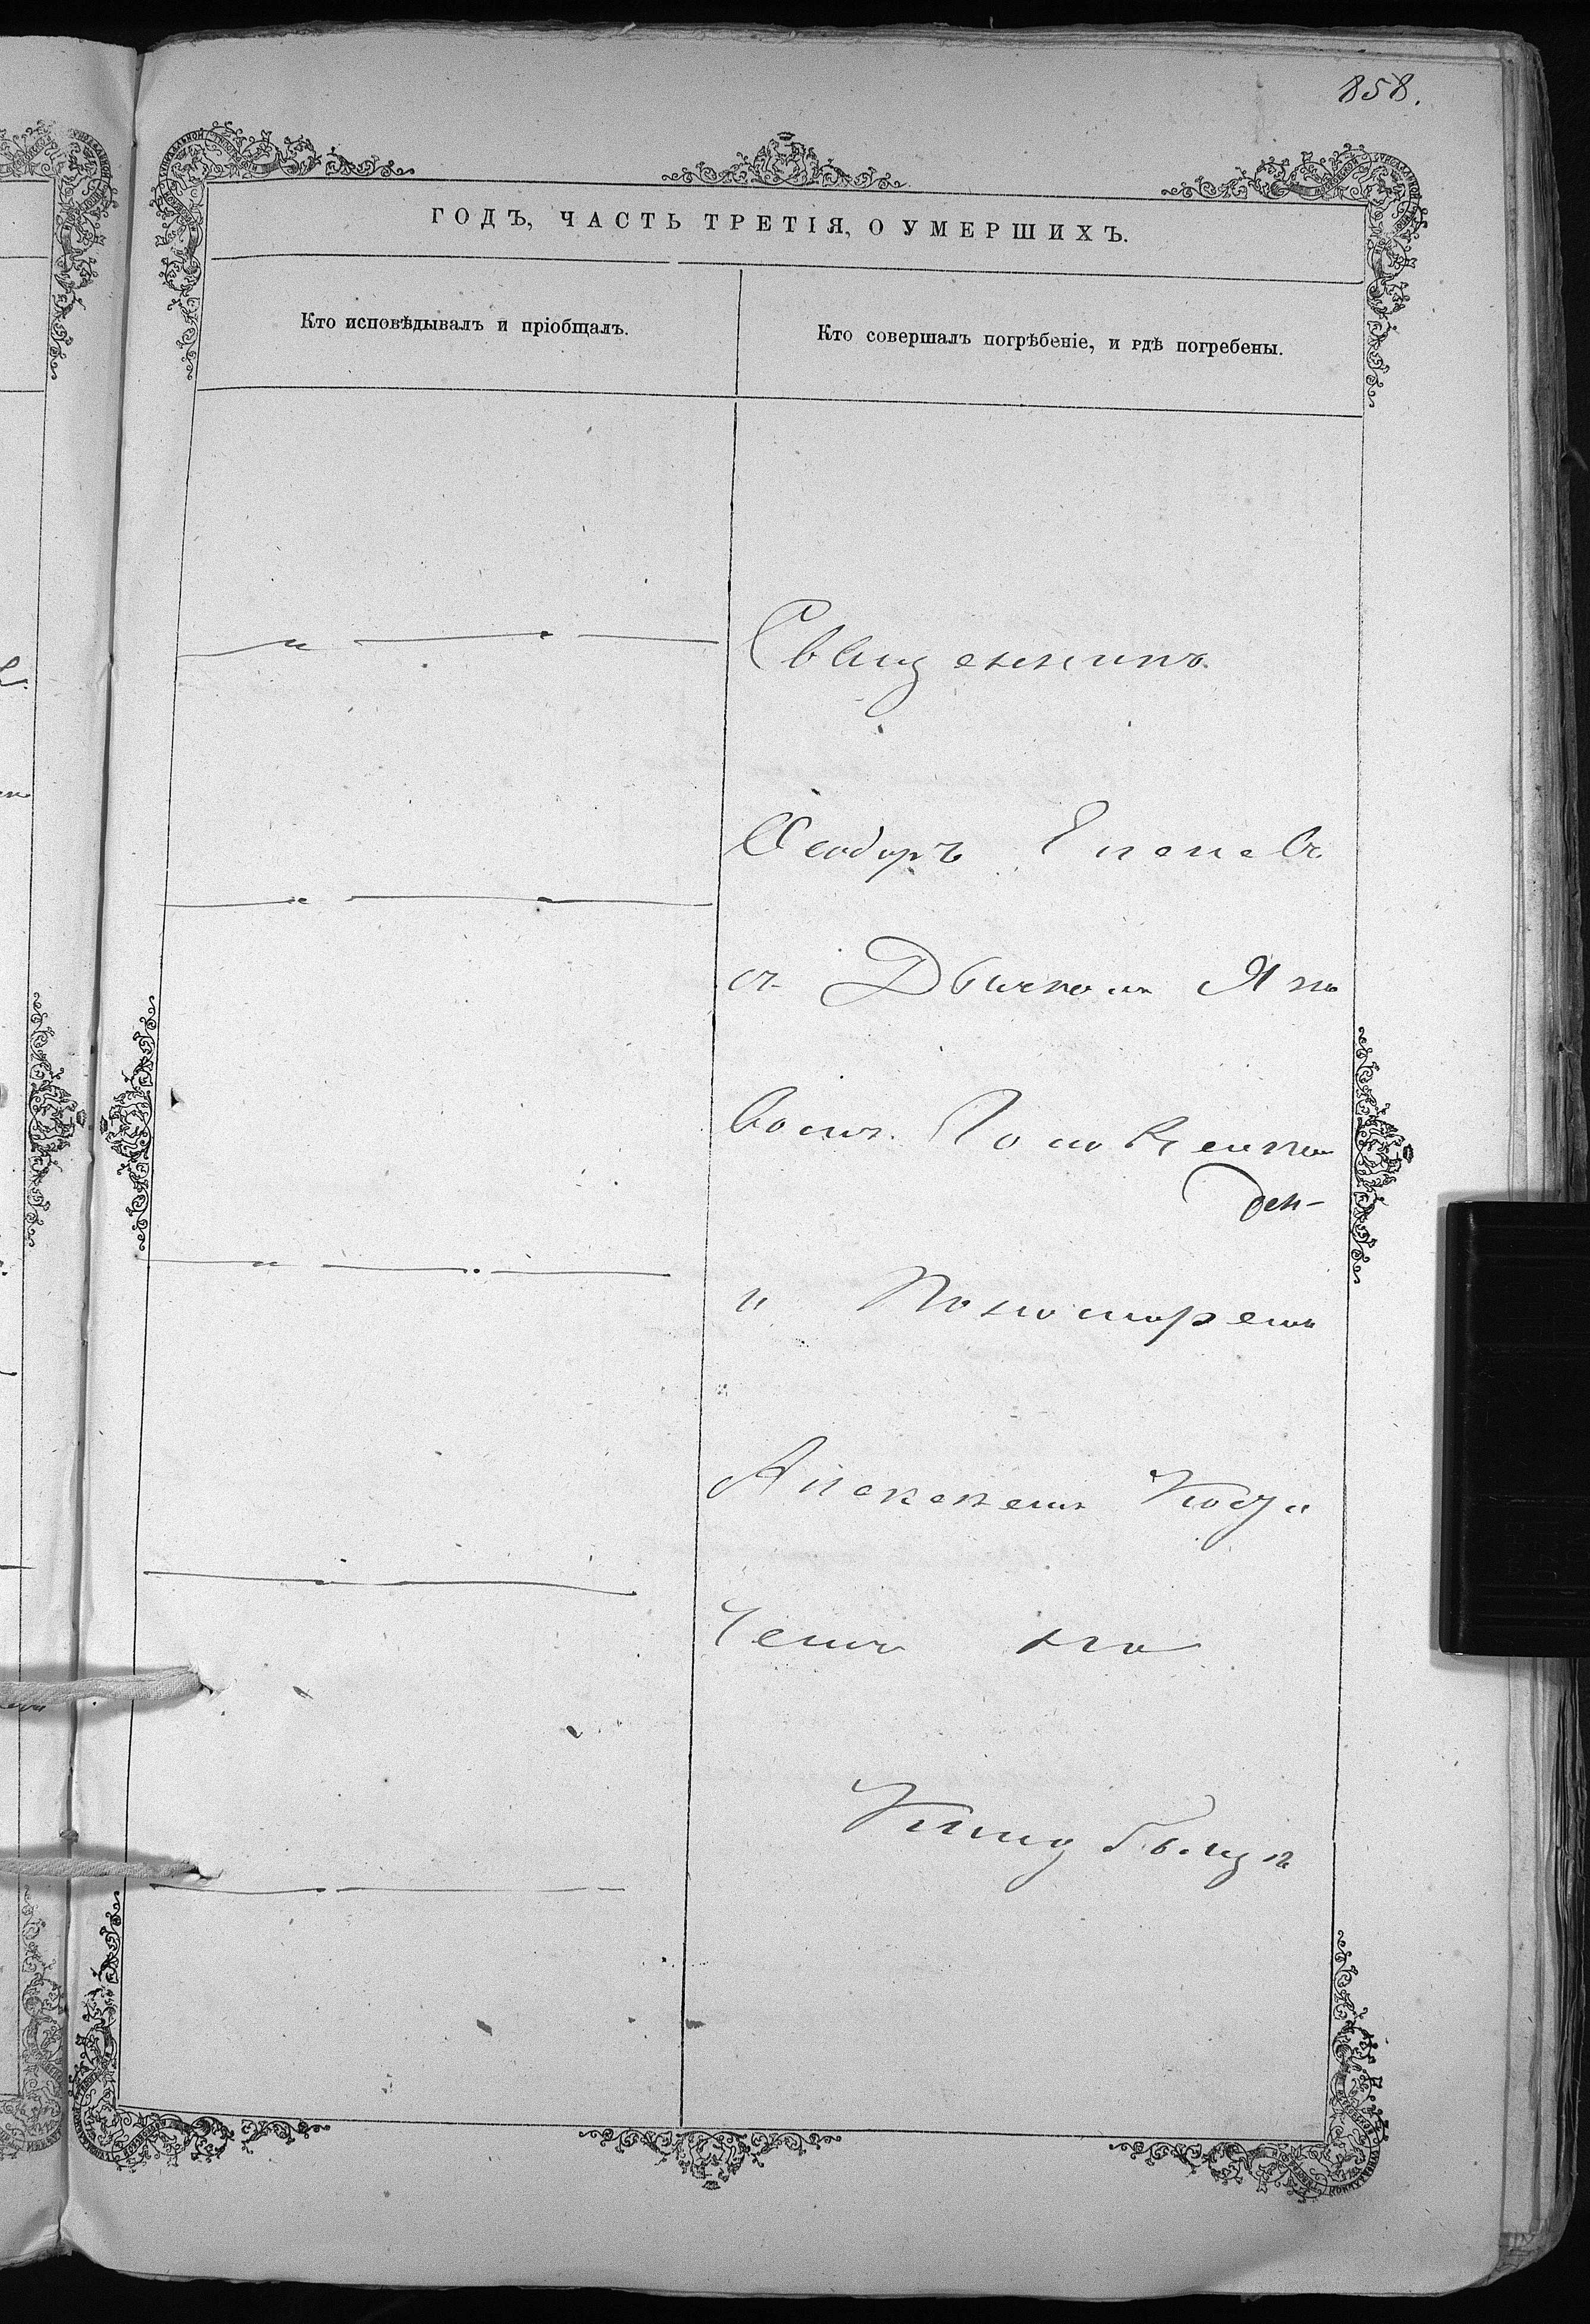 858.
ГОДЪ, ЧАСТЬ ТРЕТІЯ, О УМЕРШИХЪ.
Кто исповѣдывалъ и пріобщалъ.
Кто совершалъ погрѣбеніе, и гдѣ погребены.
Священникъ
Ѳеодоръ Еленевъ
съ Дьячкомъ Яко
вомъ
и Пономаремъ
Алексѣемъ
чемъ на
Кладбищѣ